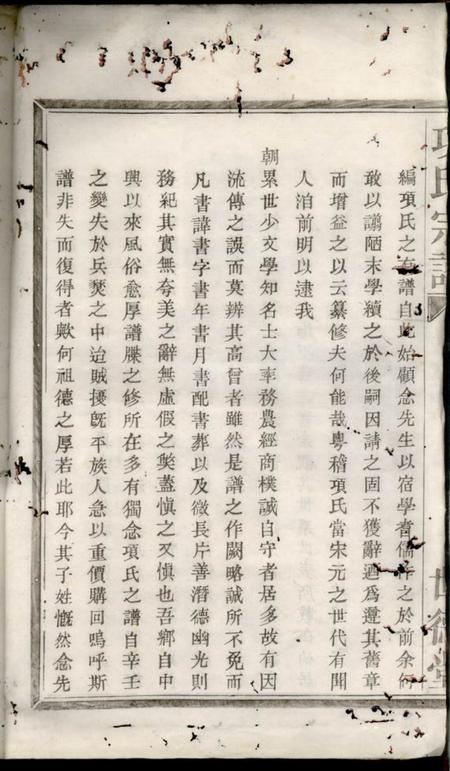 項氏宗譜
世德堂
編項氏之有譜自此始顧念先生以宿學耆儒作之於前余何
敢以譾陋末學續之於後嗣因請之固不獲辭迺爲遵其舊章
而增益之以云纂修夫何能哉粵稽項氏當宋元之世代有聞
人洎前明以逮我
朝累世少文學知名士大率務農經商樸誠自守者居多故有因
流傳之誤而莫辨其高曾者雖然是譜之作闕略誠所不免而
凡書諱書字書年書月書配書葬以及微長片善潛德幽光則
務紀其實無夸美之辭無虛假之獘蓋愼之又愼也吾鄉自中
興以來風俗愈厚譜牒之修所在多有獨念項氏之譜自辛壬
之變失於兵燹之中迨賊擾旣平族人急以重價購回嗚呼斯
譜非失而復得者歟何祖德之厚若此耶今其子姓慨然念先